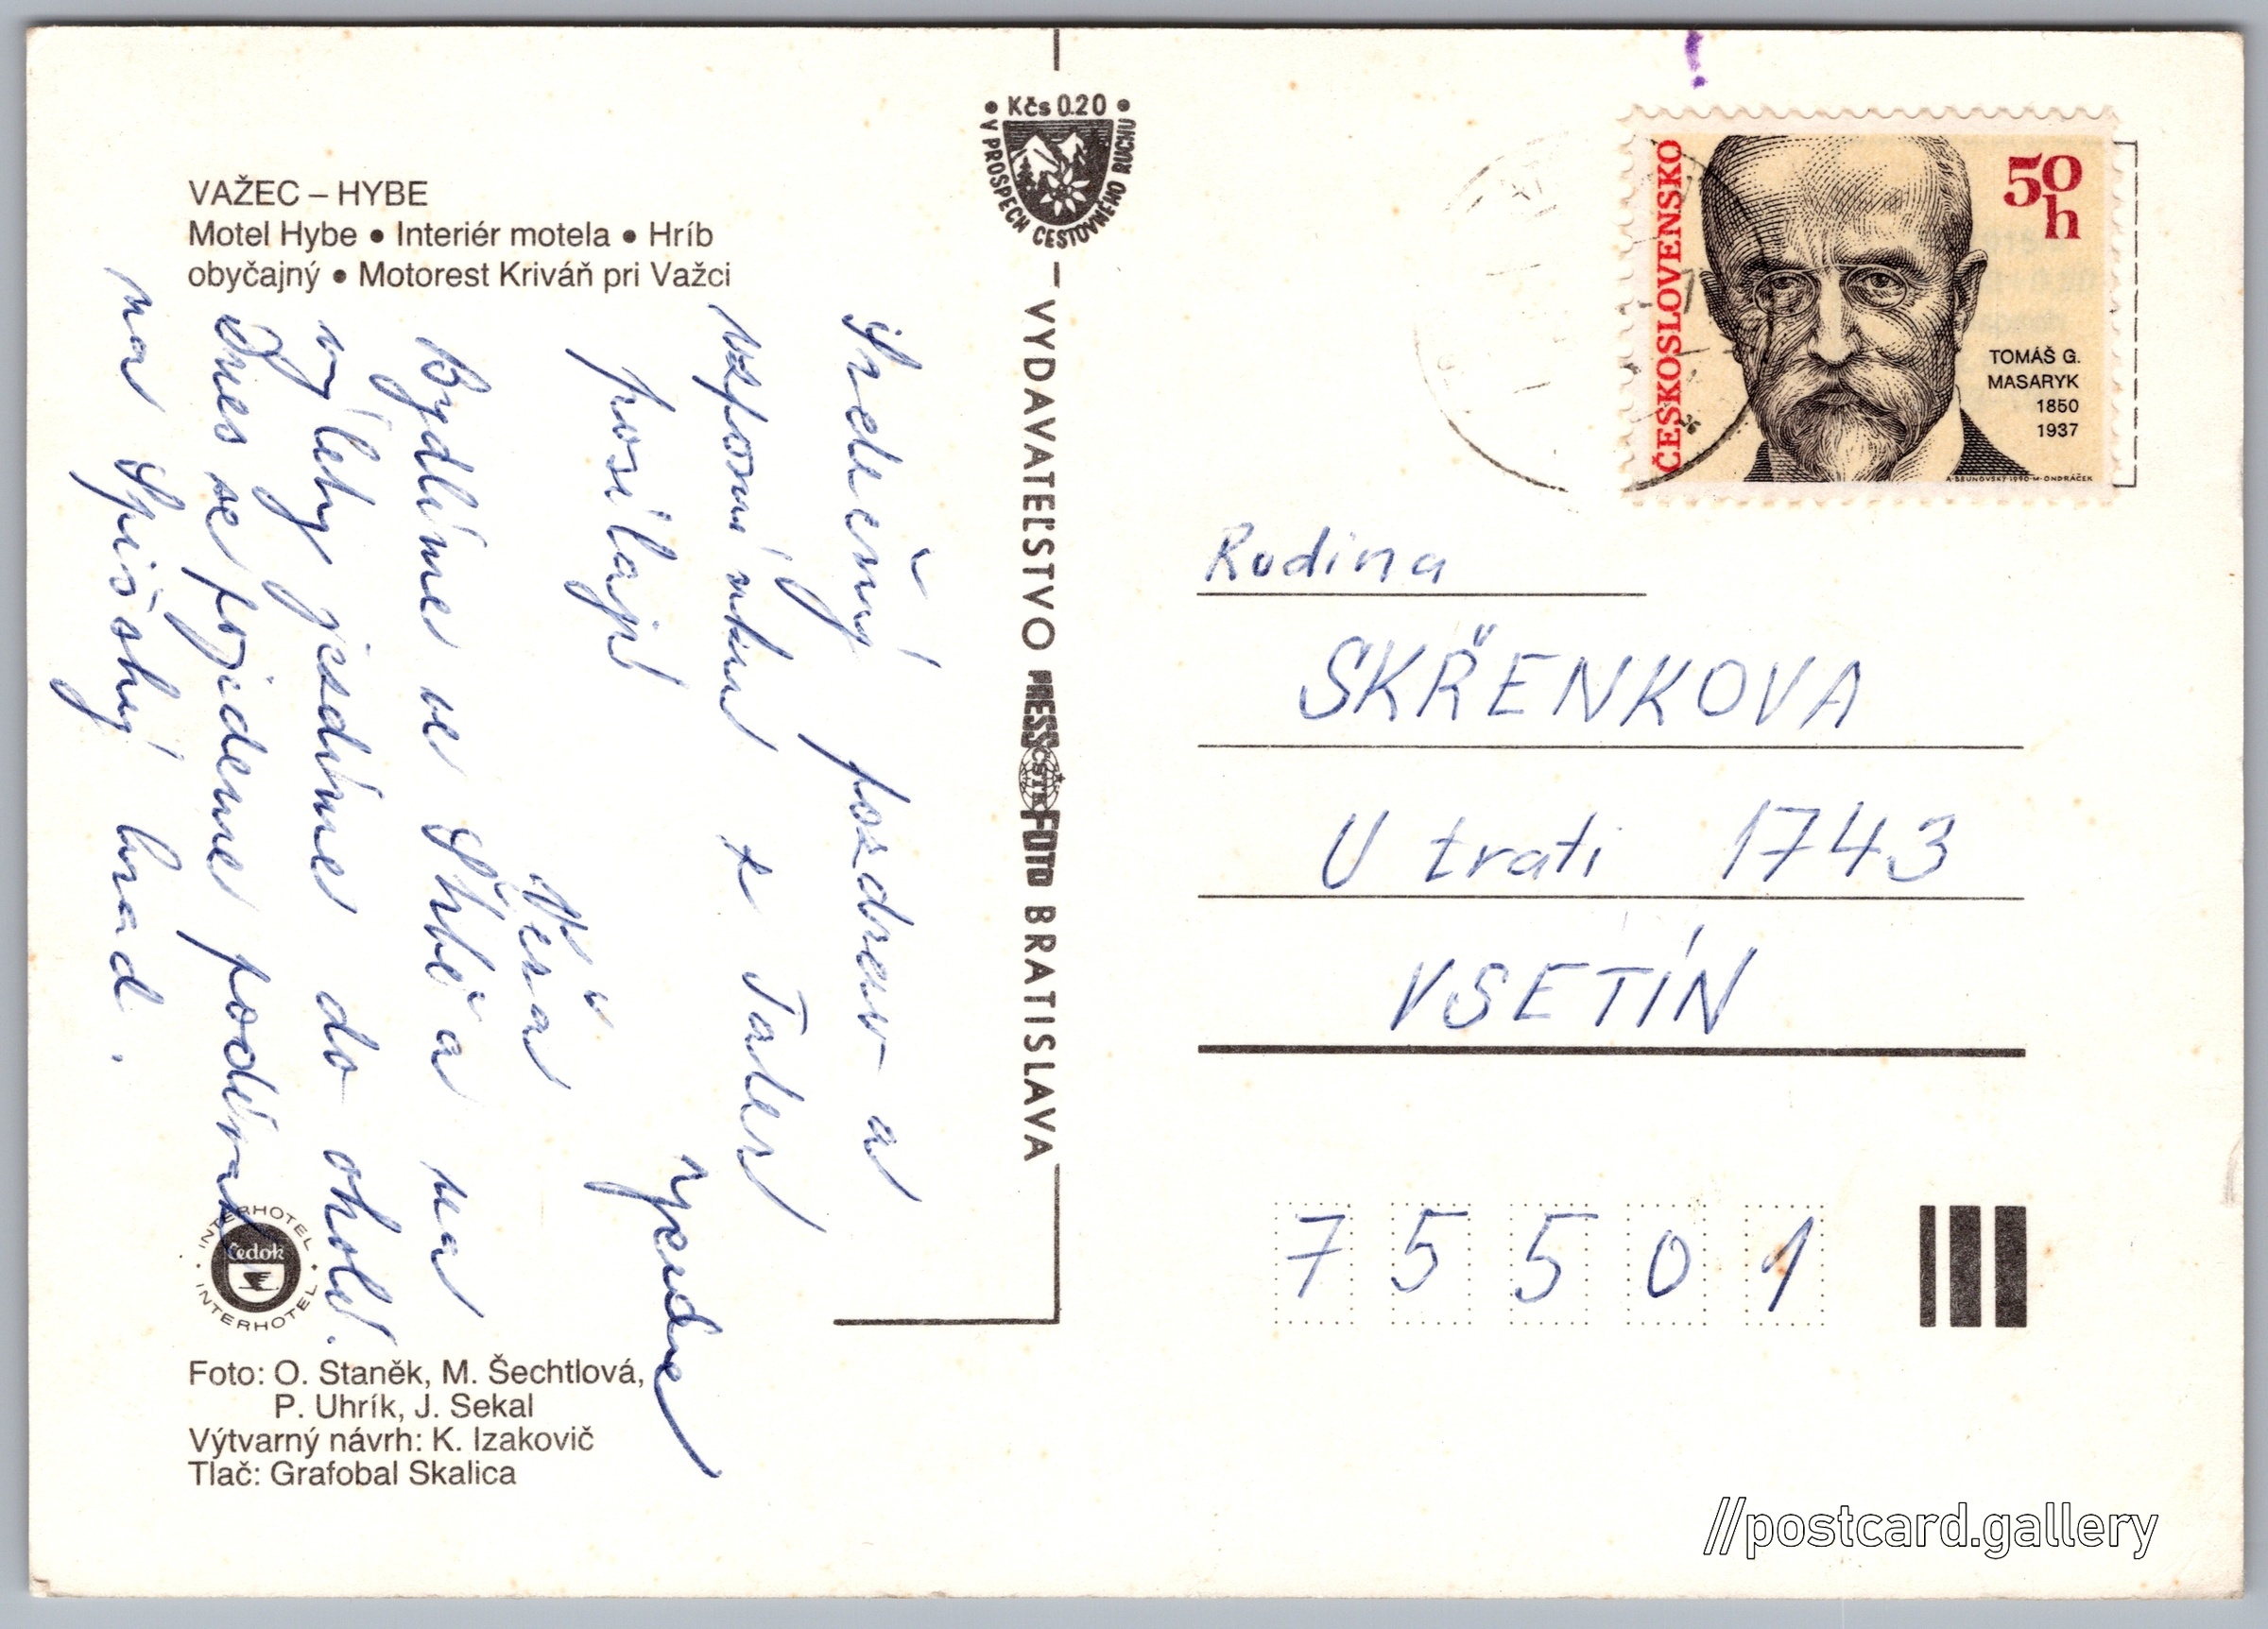 VAŽEC – HYBE
Motel Hybe • Interiér motela • Hríb
obyčajný • Motorest Kriváň pri Važci
Srdečný pozdrav a
vzpomínku z Tater
posílají
Věra
Bydlíme ve Štrbě a na
výlety jezdíme do okolí.
Dnes se pojedeme podívat
na Spišský hrad.
INTERHOTEL
čedok
INTERHOTEL
Foto: O. Staněk, M. Šechtlová,
P. Uhrík, J. Sekal
Výtvarný návrh: K. Izakovič
Tlač: Grafobal Skalica
• Kčs 0.20 •
V PROSPECH CESTOVNÉHO RUCHU
– VYDAVATEĽSTVO PRESSFOTO BRATISLAVA
ČSTK
ČESKOSLOVENSKO
50
h
TOMÁŠ G.
MASARYK
1850
1937
A.BRUNOVSKÝ·1990·M.ONDRÁČEK
Rodina
SKŘENKOVA
U trati 1743
VSETÍN
75501
//postcard.gallery